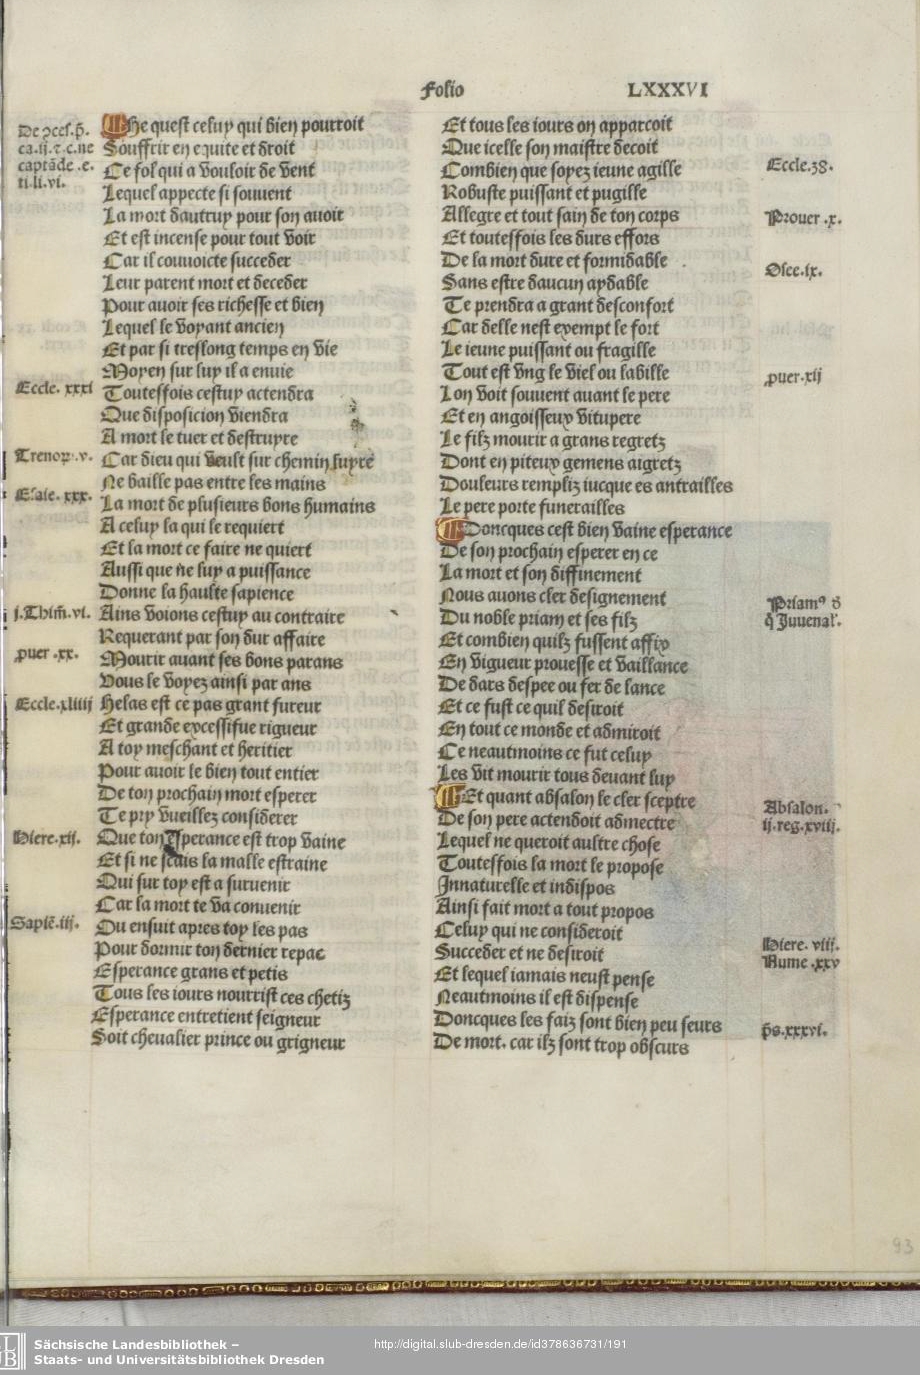 Folio LXXXVI
De ꝯceſ. p̄.
ca. ij. ⁊. c. ne
captāde .e.
ti. li. vi.
He queſt celuy qui bien pourroit
Souffrir en equite et droit
Ce fol qui a vouloir de vent
Lequel appecte ſi ſouuent
La mort dautruy pour ſon auoir
Et eſt incenſe pour tout voir
Car il couuoicte ſucceder
Leur parent mort et deceder
Pour auoir ſes richeſſe et bien
Lequel le voyant ancien
Et par ſi treſlong temps en vie
Moyen ſur luy il a enuie
Eccle. xxxi
Touteffois ceſtuy actendra
Que diſpoſicion viendra
A mort le tuer et deſtruyre
Trenoꝝ. v.
Car dieu qui veult ſur chemin luyre
Ne baille pas entre les mains
Eſaie. xxx.
La mort de pluſieurs bons humains
A celuy la qui le requiert
Et la mort ce faire ne quiert
Auſſi que ne luy a puiſſance
Donne la haulte ſapience
j. Thim̄. vi.
Ains voions ceſtuy au contraire
Requerant par ſon dur affaire
ꝓuer .xx.
Mourir auant ſes bons parans
Vous le voyez ainſi par ans
Eccle. xliiij
Helas eſt ce pas grant fureur
Et grande exceſſifue rigueur
A toy meſchant et heritier
Pour auoir le bien tout entier
De ton prochain mort eſperer
Te pry vueillez conſiderer
Hiere. xij.
Que ton eſperance eſt trop vaine
Et ſi ne ſcais la malle eſtraine
Qui ſur toy eſt a ſuruenir
Car la mort te va conuenir
Sapiē. iij.
Ou enſuit apres toy les pas
Pour dormir ton dernier repac
Eſperance grans et petis
Tous les iours nourriſt ces chetiz
Eſperance entretient ſeigneur
Soit cheualier prince ou grigneur
Et tous les iours on apparcoit
Que icelle ſon maiſtre decoit
Combien que ſoyez ieune agille
Eccle. 38.
Robuſte puiſſant et pugille
Allegre et tout ſain de ton corps
Prouer .x.
Et touteffois les durs effors
De la mort dure et formidable
Oſee. ix.
Sans eſtre daucun aydable
Te prendra a grant deſconfort
Car delle neſt exempt le fort
Le ieune puiſſant ou fragille
Tout eſt vng le viel ou labille
ꝓuer. xij
Lon voit ſouuent auant le pere
Et en angoiſſeux vitupere
Le filz mourir a grans regretz
Dont en piteux gemens aigretz
Douleurs rempliz iucque es antrailles
Le pere porte funerailles
Doncques ceſt bien vaine eſperance
De ſon prochain eſperer en ce
La mort et ſon diffinement
Nous auons cler deſignement
Priamꝰ d
Du noble priam et ſes filz
q̄ Juuenal'.
Et combien quilz fuſſent affix
En vigueur proueſſe et vaillance
De dars deſpee ou fer de lance
Et ce fuſt ce quil deſiroit
En tout ce monde et admiroit
Ce neautmoins ce fut celuy
Les vit mourir tous deuant luy
Et quant abſalon le cler ſceptre
Abſalon.
De ſon pere actendoit admectre
ij. reg. xviij.
Lequel ne queroit aultre choſe
Touteffois la mort le propoſe
Innaturelle et indiſpos
Ainſi fait mort a tout propos
Celuy qui ne conſideroit
Hiere. viij.
Succeder et ne deſiroit
Nume .xxv
Et lequel iamais neuſt penſe
Neautmoins il eſt diſpenſe
Doncques les faiz ſont bien peu ſeurs
p̄s. xxxvi.
De mort. car ilz ſont trop obſcurs
93
Sächsische Landesbibliothek –
Staats- und Universitätsbibliothek Dresden
http://digital.slub-dresden.de/id378636731/191